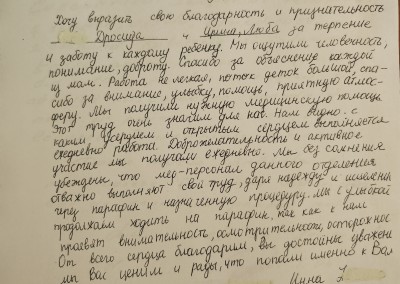 Хочу выразить свою благодарность и признательность
и Ирина, Люба за терпение
и заботу к каждому ребенку. Мы ощутили человечность,
понимание, доброту. Спасибо за объяснение каждой
из мам. Работа не легкая, поток деток большой, спа-
сибо за внимание, улыбку, помощь, приятную атмос-
феру. Мы получили нужную медицинскую помощь.
Этот труд очень значим для нас. Нам видно с
каким усердием и открытым сердцем выполняется
ежедневно работа. Доброжелательность и активное
участие мы получали ежедневно. Мы без сомнения
убеждены, что мед-персонал данного отделения
отважно выполняют свой труд, даря надежду и исцелен
через парафин и назначенную процедуру. Мы с улыбкой
продолжаем ходить на парафин, так как к нам
проявят внимательность, осмотрительность, осторожное
От всего сердца благодарим, Вы достойны уважени
мы Вас ценим и рады, что попали именно к Вам